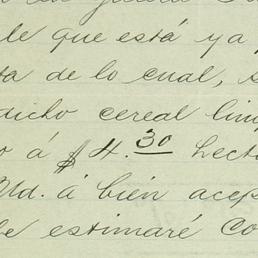 le que está ya
ta de lo cual, s
dicho cereal lim
o á $4.30 Hecto
Ud. á bien acep
be estimaré Co